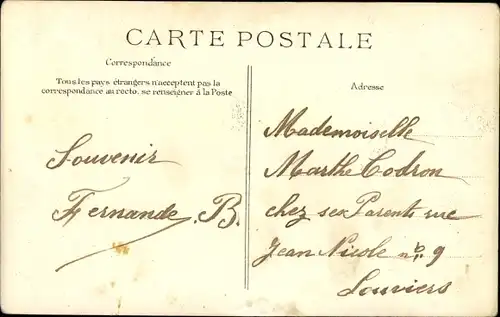 CARTE POSTALE
Correspondance
Tous les pays étrangers n'acceptent pas la
correspondance au recto, se renseigner à la Poste
Souvenir
Fernande. B.
Adresse
Mademoiselle
Marthe Codron
chez ses Parents rue
Jean Nicole nº 9
Louviers